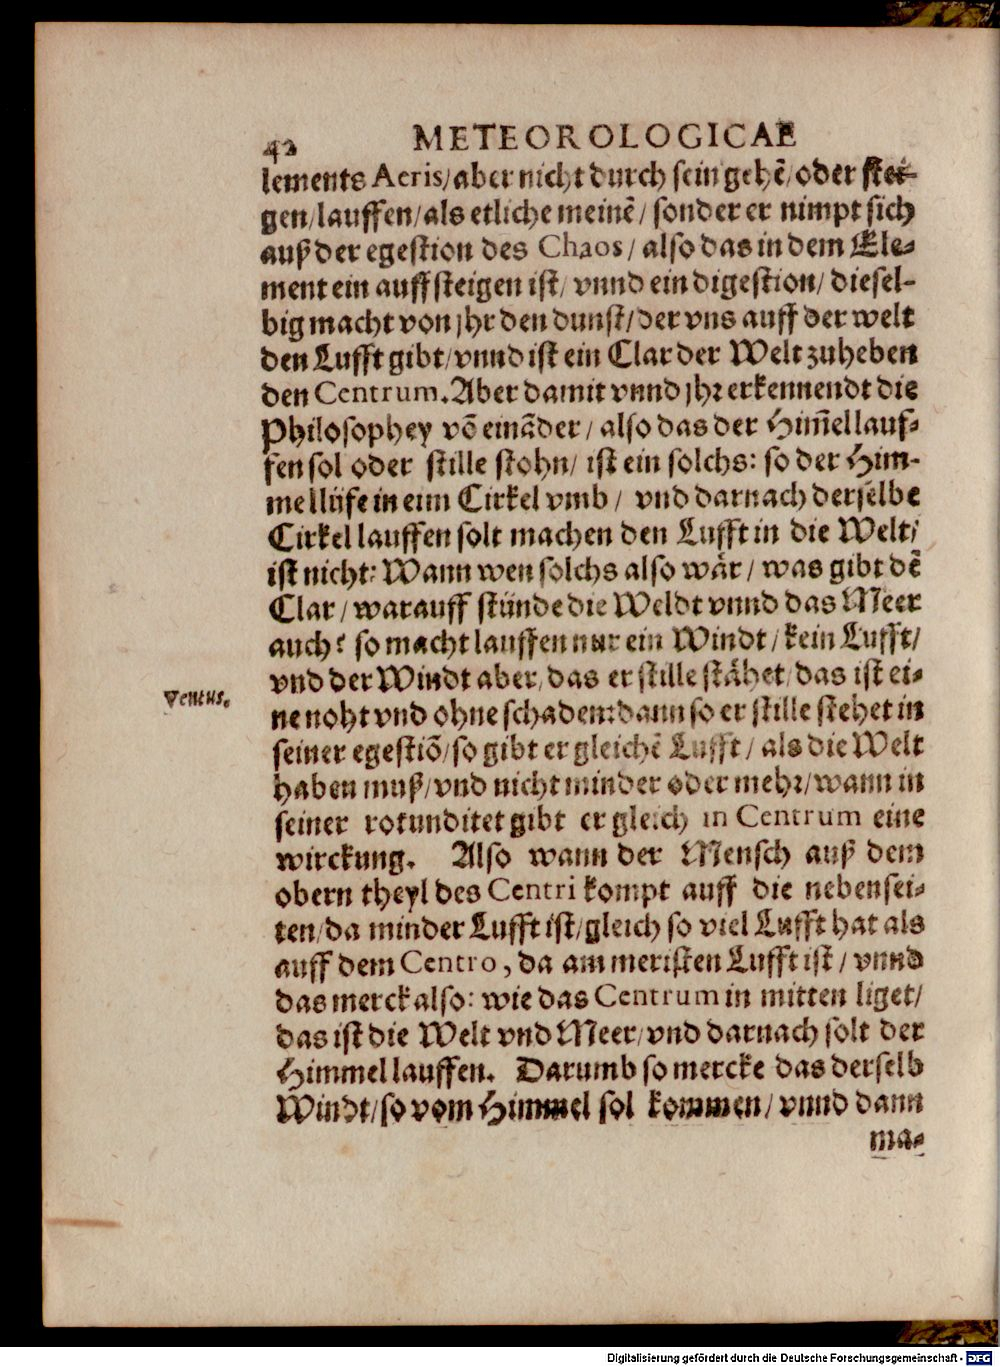 42 METEOROLOGICAE
lements Aeris/aber nicht durch sein gehẽ/oder stei-
gen/lauffen/als etliche meinẽ/sonder er nimpt sich
auß der egestion des Chaos/also das in dem Ele-
ment ein auffsteigen ist/vnnd ein digestion/diesel-
big macht von jhr den dunst/der vns auff der welt
den Lufft gibt/vnnd ist ein Clar der Welt zuheben
den Centrum. Aber damit vnnd jhr erkennendt die
Philosophey võ einãder/also das der Him̃el lauf-
fen sol oder stille stohn/ist ein solchs: so der Him-
mel lüfe in eim Cirkel vmb/vnd darnach derselbe
Cirkel lauffen solt machen den Lufft in die Welt/
ist nicht: Wann wen solchs also wår/was gibt dẽ
Clar/warauff stünde die Weldt vnnd das Meer
auch? so macht lauffen nur ein Windt/kein Lufft/
vnd der Windt aber/das er stille ståhet/das ist ei-
Ventus.
ne noht vnd ohne schadem: dann so er stille stehet in
seiner egestiõ/so gibt er gleichẽ Lufft/als die Welt
haben muß/vnd nicht minder oder mehr/wann in
seiner rotunditet gibt er gleich in Centrum eine
wirckung. Also wann der Mensch auß dem
obern theyl des Centri kompt auff die nebensei-
ten/da minder Lufft ist/gleich so viel Lufft hat als
auff dem Centro, da am meristen Lufft ist/vnnd
das merck also: wie das Centrum in mitten liget/
das ist die Welt vnd Meer/vnd darnach solt der
Himmel lauffen. Darumb so mercke das derselb
Windt/so vom Himmel sol kommen/vnnd dann
ma-
Digitalisierung gefördert durch die Deutsche Forschungsgemeinschaft - DFG